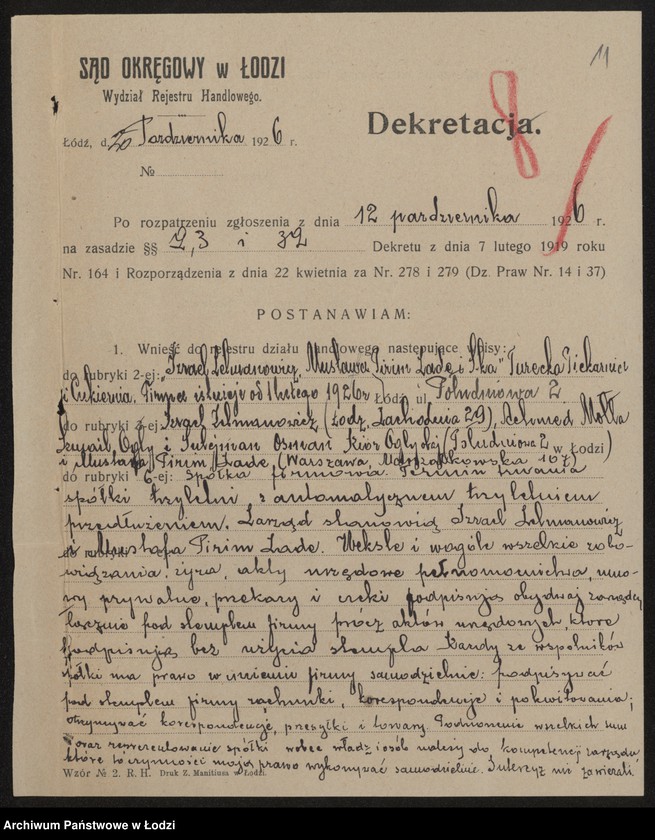 11
SĄD OKRĘGOWY w ŁODZI
Wydział Rejestru Handlowego.
Dekretacja.
8
Łódź, d. 20 Pazdziernika 1926 r.
№
Po rozpatrzeniu zgłoszenia z dnia 12 pazdziernika 1926 r.
na zasadzie §§ 2,3 i 32 Dekretu z dnia 7 lutego 1919 roku
Nr. 164 i Rozporządzenia z dnia 22 kwietnia za Nr. 278 i 279 (Dz. Praw Nr. 14 i 37)
POSTANAWIAM:
1. Wnieść do rejestru działu handlowego następujące wpisy:
do rubryki 2-ej: „Izrael Zelmanowicz, Mustawa Pirim Zade i S-ka" Turecka Piekarnia
i Cukiernia. Firma istnieje od 1 lutego 1926 r. Łódź ul. Południowa 2
do rubryki ej: Izrael Zelmanowicz (Łódź, Zachodnia 29), Achmed Molla
Izmail Ogły i Sulejman Osman Kior Ogły (Południowa 2 w Łodzi)
i Mustafa Pirim Zade (Warszawa, Marszałkowska 107)
do rubryki 6-ej: Spółka firmowa. Termin trwania
spółki trzyletni, z automatycznem trzyletniem
przedłużeniem. Zarząd stanowią Izrael Zelmanowicz
i Mustafa Pirim Zade. Weksle i wogóle wszelkie zobo-
wiązania, żyra, akty urzędowe pełnomocnictwa, umo-
wy prywatne, przekazy i czeki podpisują obydwaj zarządcy
łącznie pod stemplem firmy prócz aktów urzędowych, które
podpisują bez użycia stempla Każdy ze wspólników
spółki ma prawo w imieniu firmy samodzielnie: podpisywać
pod stemplem firmy rachunki, korespondencje i pokwitowania;
otrzymywać korespondencję, przesyłki i towary. Podnoszenie wszelkich sum
oraz reprezentowanie spółki wobec władz i osób należy do kompetencji zarządu
które to czynności mają prawo wykonywać samodzielnie. Intercyz nie zawierali
Wzór № 2. R. H. Druk Z. Manitiusa w Łodzi.
Archiwum Państwowe w Łodzi